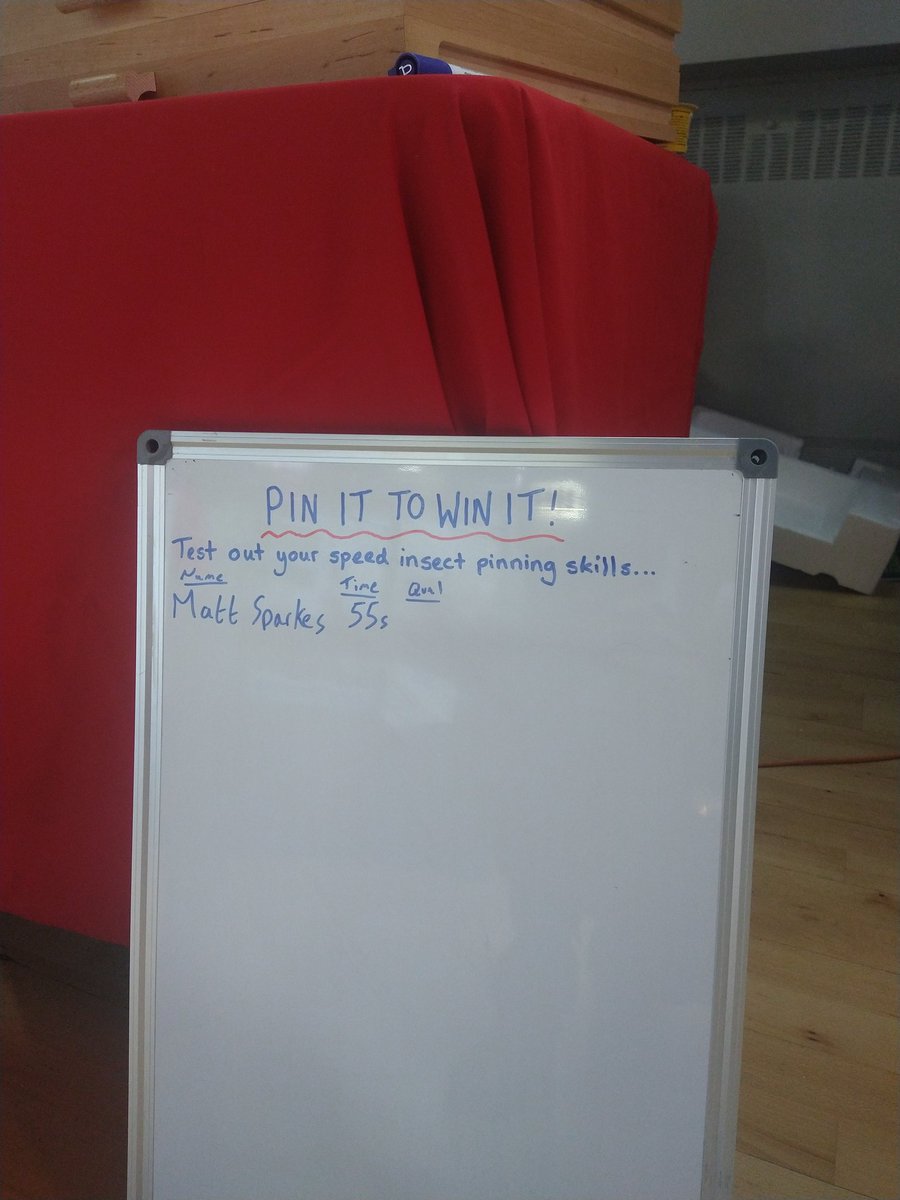 PIN IT TO WIN IT!
Test out your speed insect pinning skills...
Name Time Qual
Matt Sparkes 55s